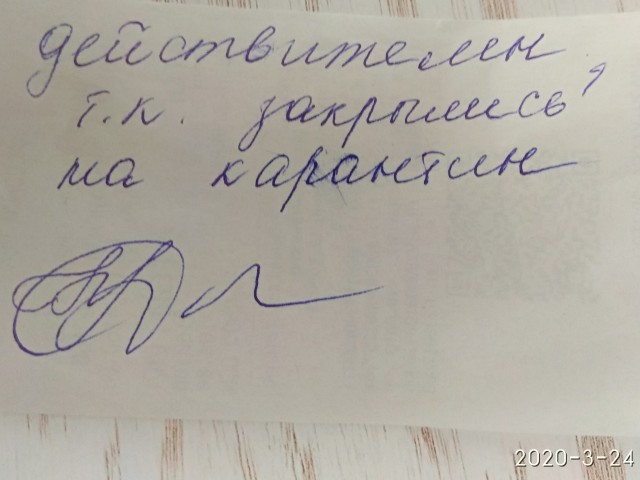 действителен,
т.к. закрылись
на карантин
2020-3-24